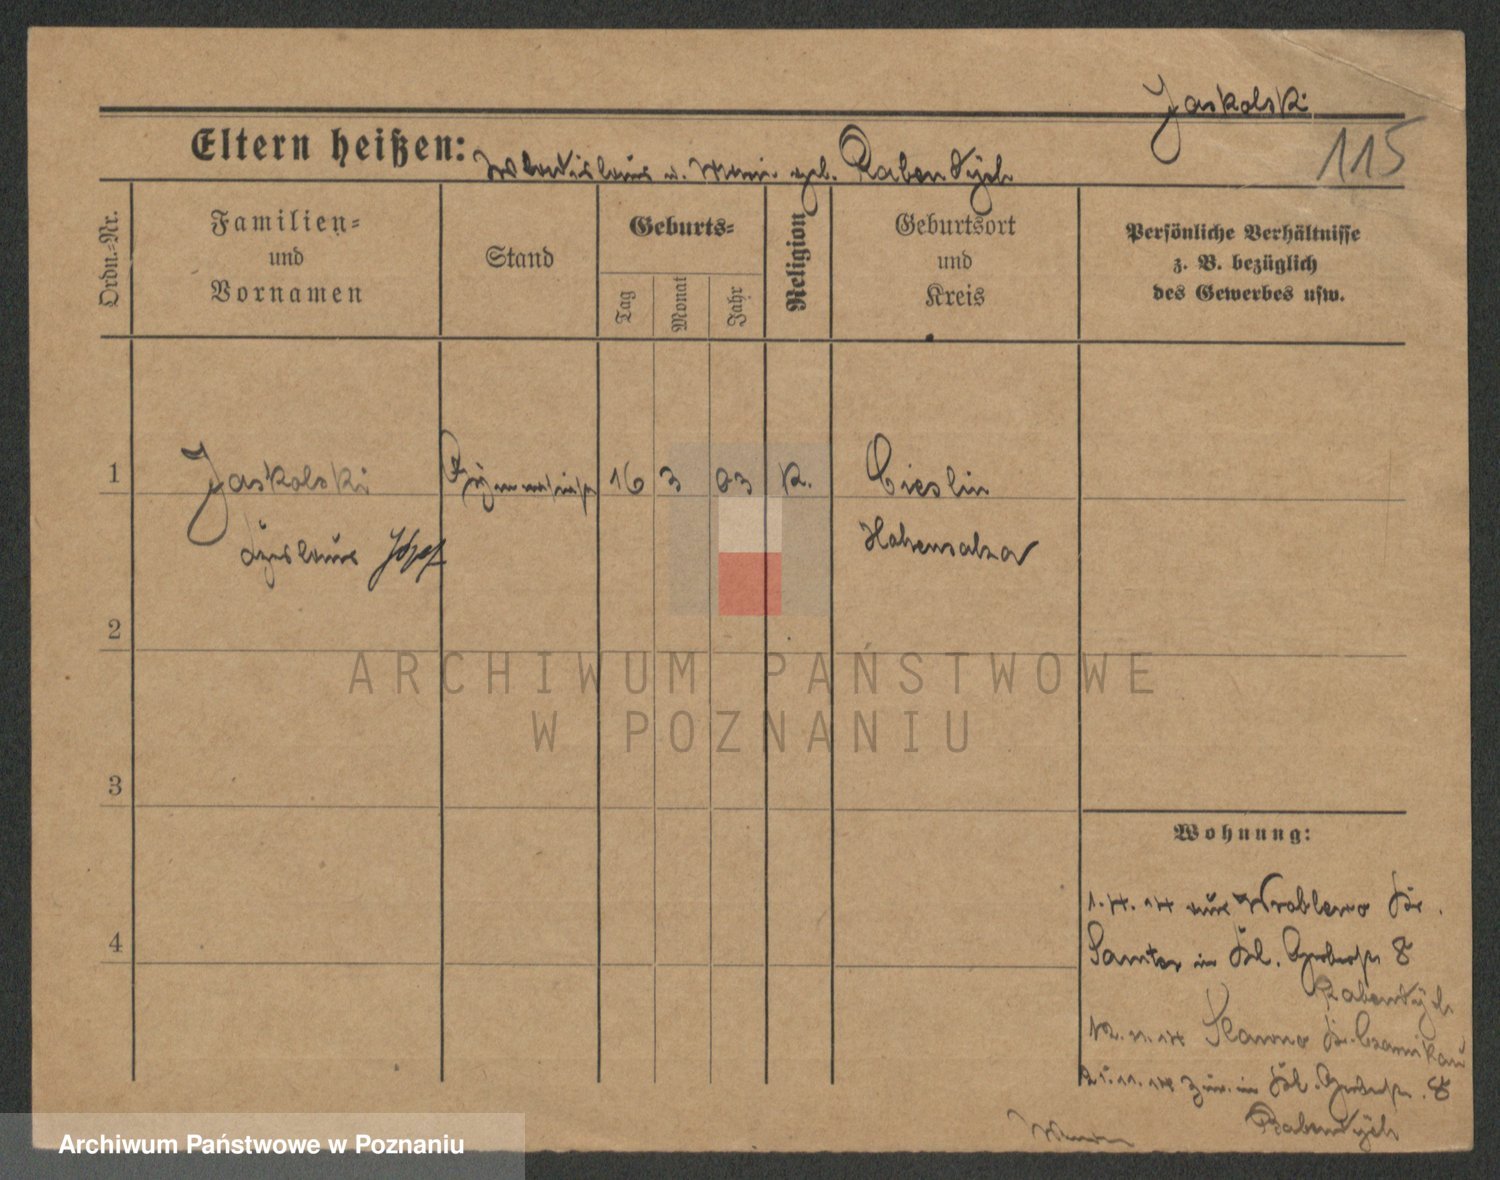 Jaskolski
115
Eltern heißen: Wladislaus u. Marie geb. Rabendzich
Ordn.-Nr.
Familien-
und
Vornamen
Stand
Geburts-
Tag
Monat
Jahr
Religion
Geburtsort
und
Kreis
Persönliche Verhältnisse
z. B. bezüglich
des Gewerbes usw.
1
Jaskolski
16 3 03 K.
Cieslin
Józef
Hohensalza
2
3
4
Wohnung:
1.4.14 aus Wroblewo Kr.
Samter in
8
12.11.14 Kr. Czarnikau
8
ARCHIWUM PAŃSTWOWE
W POZNANIU
Archiwum Państwowe w Poznaniu